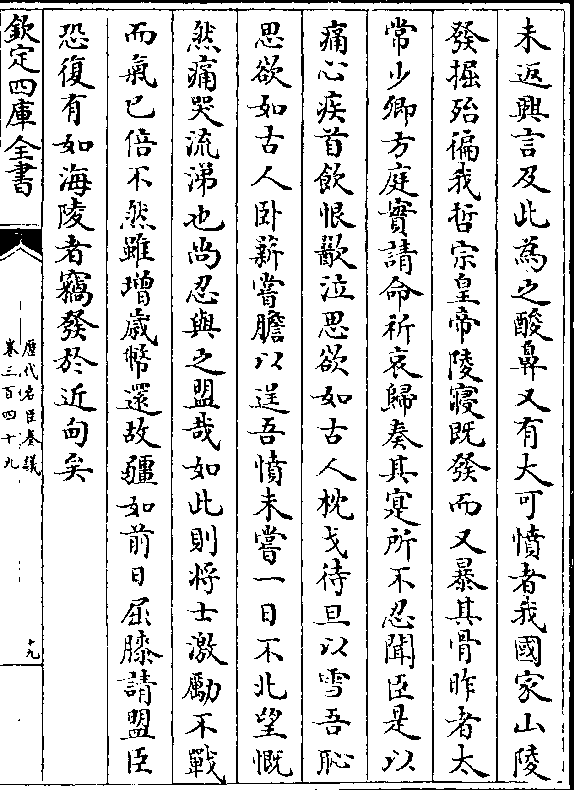 未返興言及此為之酸鼻又有大可憤者我國家山陵
發掘殆徧我哲宗皇帝陵寢既發而又暴其骨昨者太
常少卿方庭實請命祈哀歸奏其寔所不忍聞臣是以
痛心疾首飲恨歠泣思欲如古人枕戈待旦以雪吾恥
思欲如古人卧薪嘗膽以逞吾憤未嘗一日不北望慨
然痛哭流涕也尚忍與之盟哉如此則将士激勵不戰
而氣已倍不然雖增歳幣還故疆如前日屈膝請盟臣
恐復有如海陵者竊發於近甸矣
欽定四庫全書
歷代名臣奏議
卷三百四十九
十九